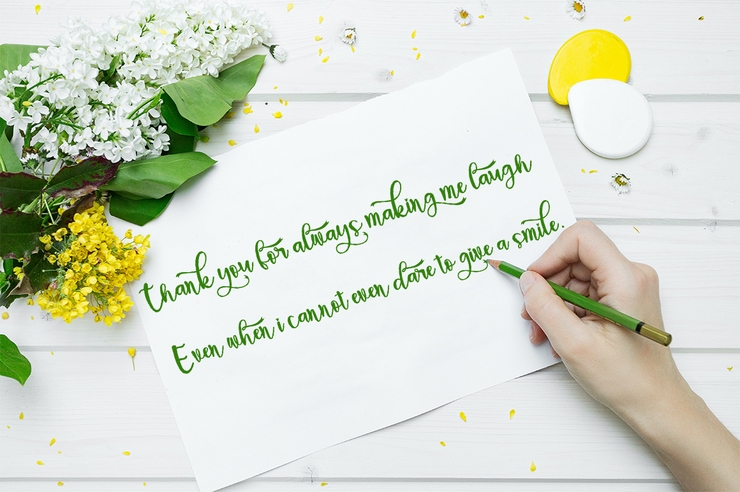 thank you for always making me laugh
Even when i cannot even dare to give a smile.